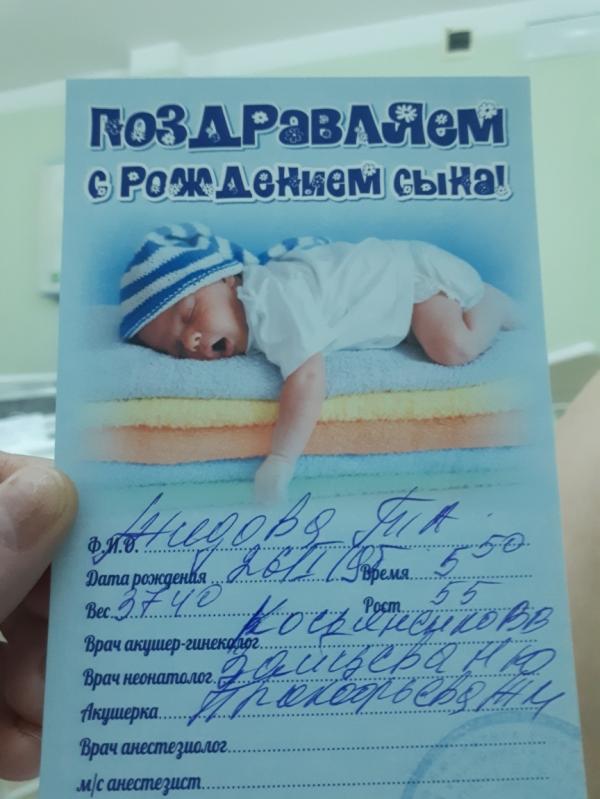 ПОЗДРАВЛЯЕМ
С РОЖДЕНИЕМ СЫНА!
Ф.И.О. Т А
Дата рождения Время 5 50
Вес 3740 Рост 55
Врач акушер-гинеколог
Врач неонатолог Зайцева Н Ю
Акушерка Прокофьева
Врач анестезиолог
м/с анестезист